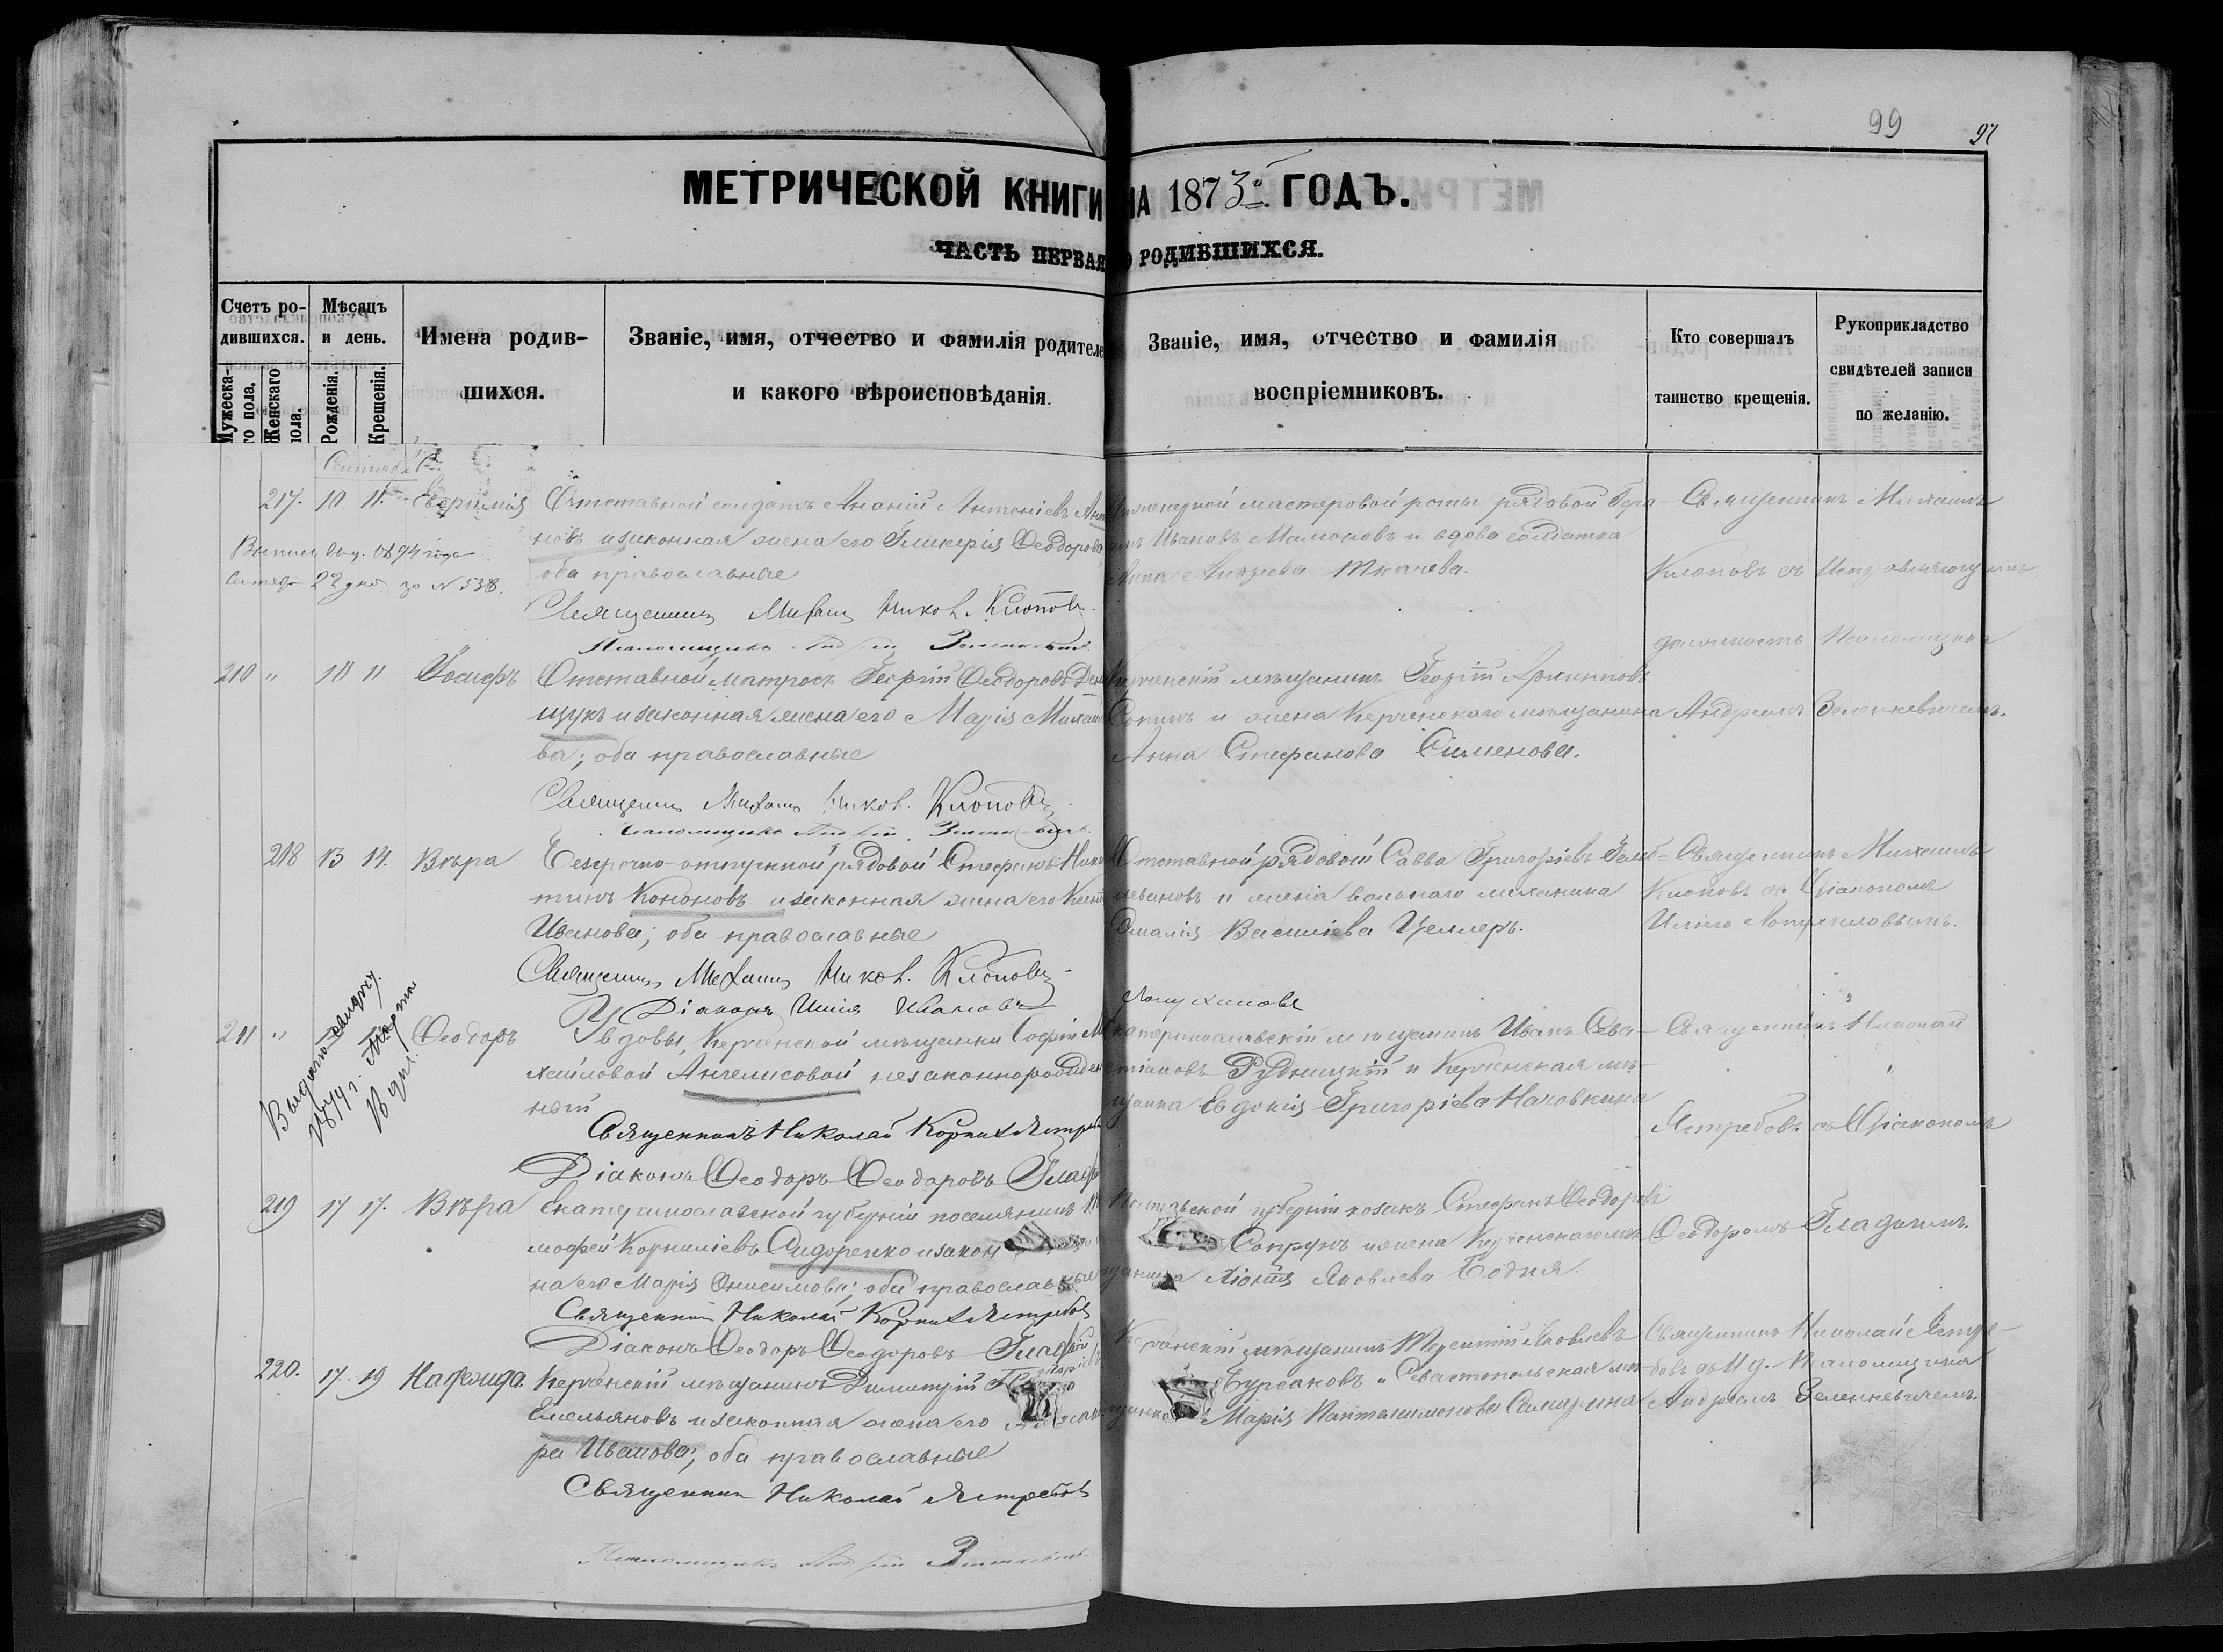 99 97
МЕТРИЧЕСКОЙ КНИГИ НА 1873й ГОДЪ.
ЧАСТЬ ПЕРВАЯ О РОДИВШИХСЯ.
Счетъ ро-
дившихся.
Мужеска-
го пола.
Женскаго
пола.
Мѣсяцъ
и день.
Рожденія.
Крещенія.
Имена родив-
шихся.
Званіе, имя, отчество и фамилія родителе
и какого вѣроисповѣданія.
Званіе, имя, отчество и фамилія
воспріемниковъ.
Кто совершалъ
таинство крещенія.
Рукоприкладство
свидѣтелей записи
по желанію.
217. 10 11. Отставной солдатъ Ананій Антоніевъ
новъ и законная жена его Гликерія Ѳеодорова
оба православные
22 дня за N 538.
Священникъ Михаилъ Клоповъ
мастеровой роты рядовой Гера-
Ивановъ Мамоновъ и вдова солдатка
Анна Андреева Ткачева.
Священникъ Михаилъ
Клоповъ съ Исправляющимъ
должность Псаломщика
Андреемъ Зеленкевичемъ.
210 " 10 11 Іосифъ Отставной матросъ Георгій Ѳеодоровъ Ден
щукъ и законная жена его Марія Михаи
ва; оба православные
Священникъ Михаилъ Клоповъ
Керченскій мѣщанинъ Георгій Архиповъ
Сокинъ и жена Керченскаго мѣщанина
Анна Стефанова Сименова.
218 13 14. Вѣра Безсрочно-отпускной рядовой Стефанъ Ники
тинъ Кононовъ и законная жена его
Иванова; оба православные
Священникъ Михаилъ Клоповъ
Діаконъ Илія Ивановъ Лопухиновъ
Отставной рядовой Савва Григоріевъ
и жена вольнаго механика
Эмалія Василіева Целлеръ.
Священникъ Михаилъ
Клоповъ съ Діакономъ
Иліею
211 " Ѳеодоръ У вдовы, Керченской мѣщанки Софіи М
хайловой Ангелисовой незаконнорожден
ный
Священникъ Николай Ястреб
Діаконъ Ѳеодоръ Ѳеодоровъ Глад
Екатеринославскій мѣщанинъ Иванъ Сева-
стіановъ Рудницкій и Керченская мѣ-
щанка Евдокія Григоріева Наховкина
Священникъ Николай
Ястребовъ съ Діакономъ
Ѳеодоромъ Гладкимъ.
219 17 17. Вѣра Екатеринославской губерніи поселянинъ
мофей Корниліевъ Сидоренко и закон
на его Марія Онисимова; оба православны
Священникъ Николай Ястребовъ
Діаконъ Ѳеодоръ Ѳеодоровъ Гладкій
Полтавской губерніи козакъ Стефанъ Ѳеодоровъ
Сопрунъ и жена Керченскаго мѣ-
щанина Яковлева Бодня.
220. 17. 19 Надежда. Керченскій мѣщанинъ Димитрій
Емельяновъ и законная жена его
ра Иванова; оба православные
Священникъ Николай Ястребовъ
Керченскій мѣщанинъ Терентій Яковлевъ
Бурсаковъ и Севастопольская мѣ-
щанка Марія Пантелимонова Самарина
Священникъ Николай Ястре-
бовъ съ И. д. Псаломщика
Андреемъ Зеленкевичемъ.